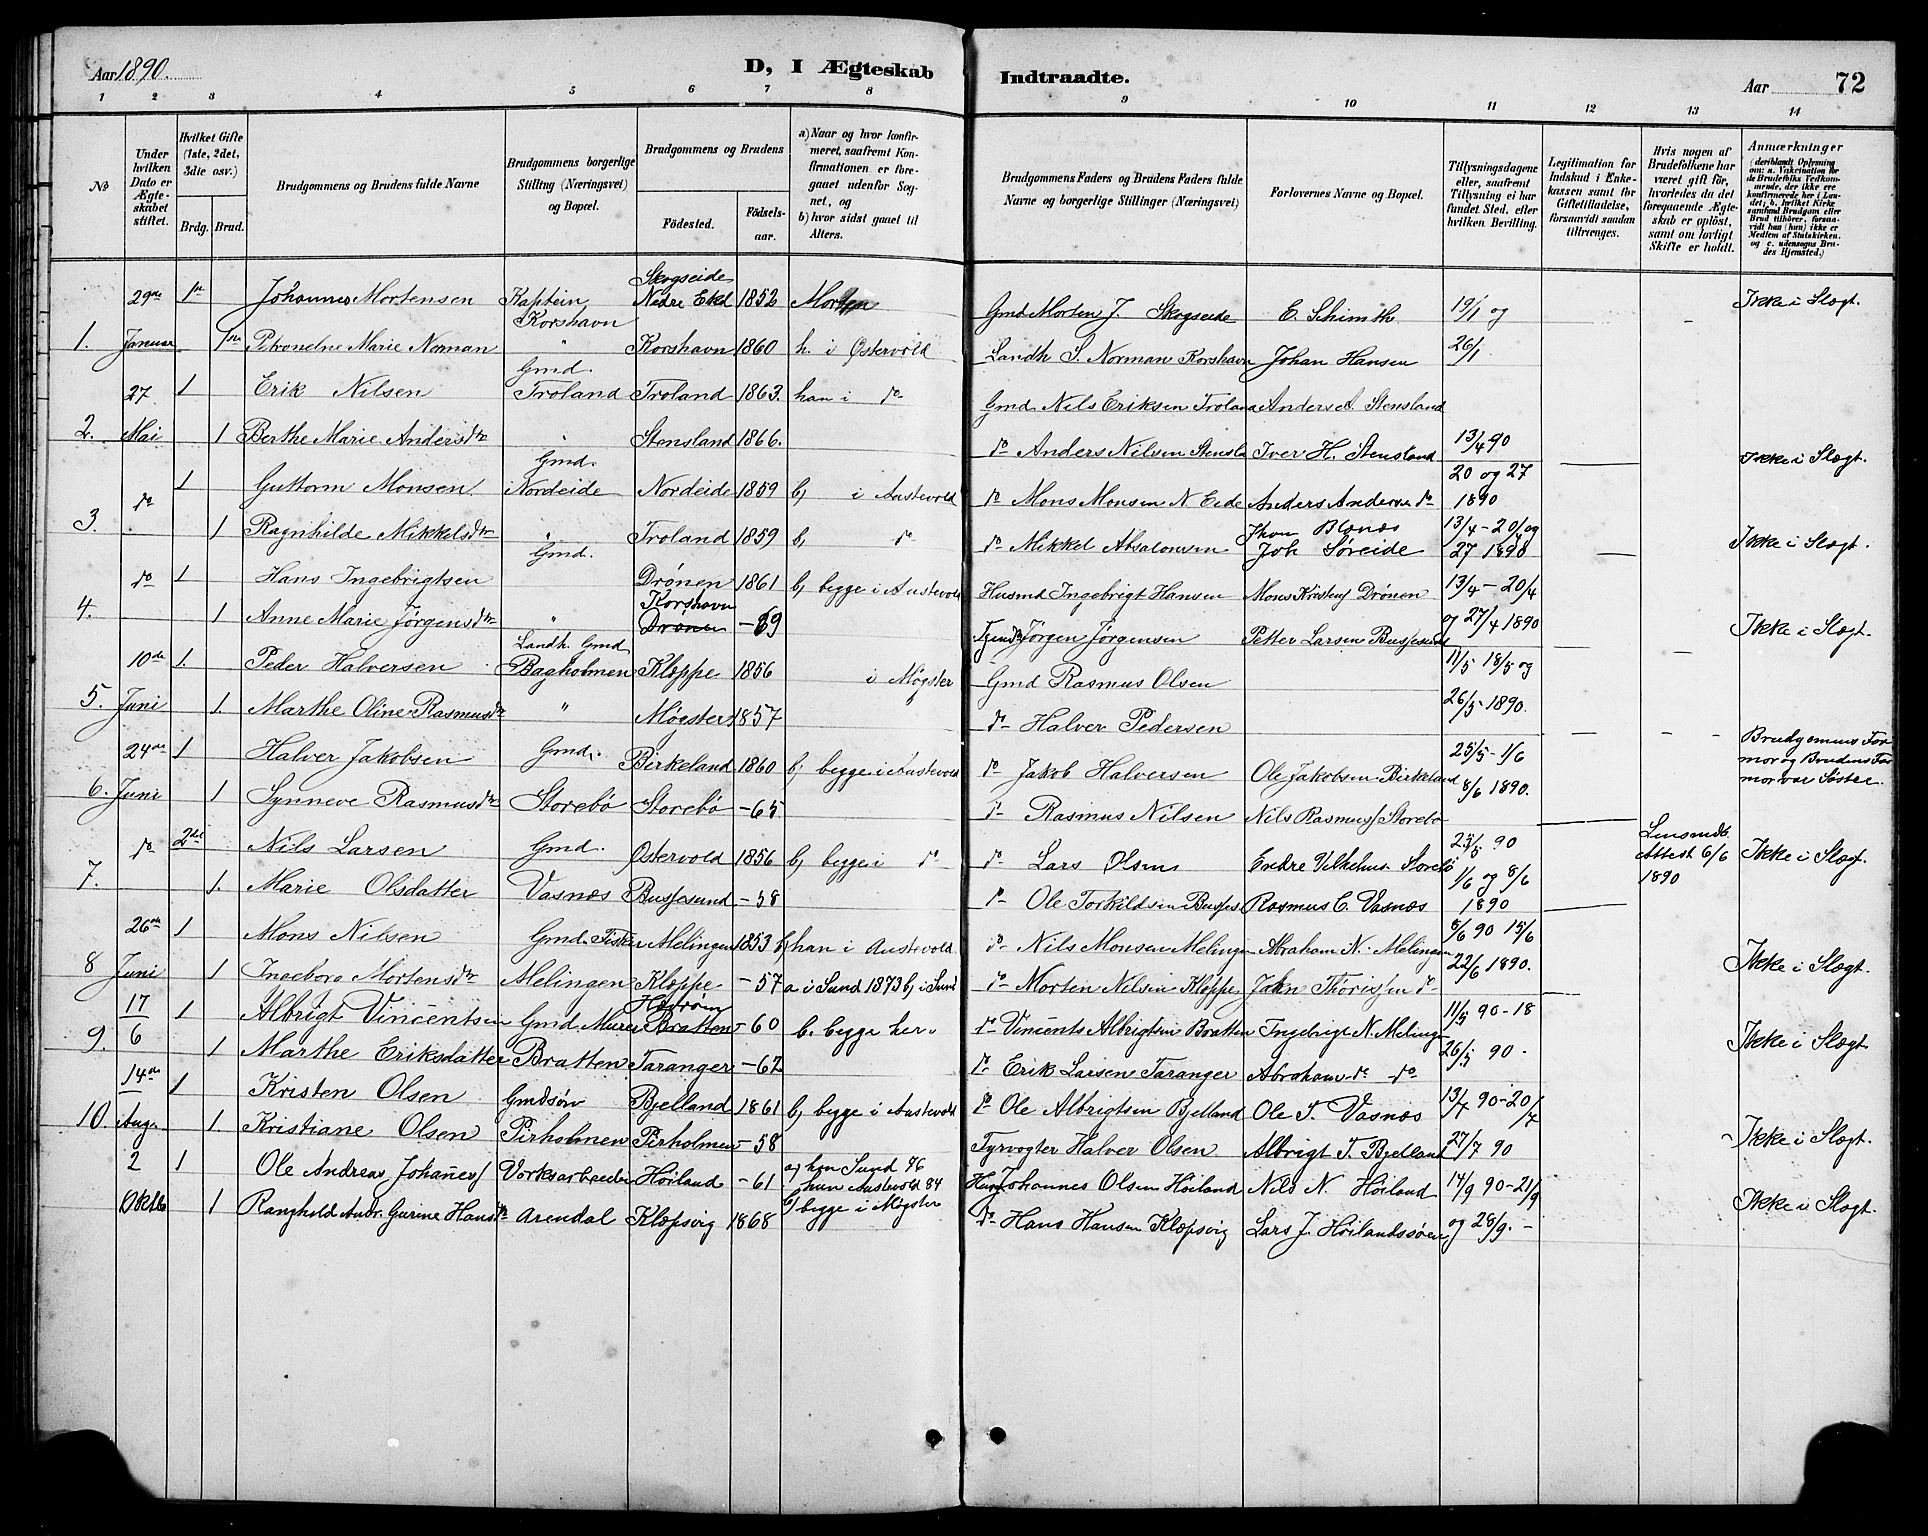 Aar 1890.
D, I Ægteskab Indtraadte.
Aar
72
1 2 3 4 5 6 7 8 9 10 11 12 13 14
No
Under hvilken Dato er Ægteskabet stiftet.
Hvilket Gifte (1ste, 2det, 3die osv.)
Brdg. Brud.
Brudgommens og Brudens fulde Navne
Brudgommens borgerlige Stilling (Næringsvei) og Bopæl.
Brudgommens og Brudens
Fødested.
Fødselsaar.
a) Naar og hvor konfirmeret, saafremt Konfirmationen er foregaaet udenfor Sognet, og
b) hvor sidst gaaet til Alters.
Brudgommens Faders og Brudens Faders fulde Navne og borgerlige Stillinger (Næringsvei)
Forlovernes Navne og Bopæl.
Tillysningsdagene eller, saafremt Tillysning ei har fundet Sted, efter hvilken Bevilling.
Legitimation for Indskud i Enkekassen samt for Giftetilladelse, forsaavidt saadan tiltrænges.
Hvis nogen af Brudefolkene har været gift før, hvorledes da det foregaaende Ægteskab er opløst, samt om lovligt Skifte er holdt.
Anmærkninger
(deriblandt Oplysning om: a. Vakcination for de Brudefolks Vedkommende, der ikke ere konfirmerede her i Landet; b. hvilket Kirkesamfund Brudgom eller Brud tilhører, forsaavidt han (hun) ikke er Medlem af Statskirken, og c. udensogns Brudes Hjemsted.)
29de 1ste Johannes Mortensen Kaptein Korshavn Skogseide Nedre Eked 1852 Gmd Morten J. Skogseide E. Schimth 19/1 og Ikke i Slægt.
1. Januar 1ste Petronelne Marie Norman " Korshavn 1860 h. i Østervold Landh S. Norman Korshavn Johan Hansen 26/1
27 1 Erik Nilsen Gmd. Troland Troland 1863. han i do Gmd. Nils Eriksen Troland Anders A. Stensland
2. Mai 1 Berthe Marie Andersdtr " Stensland 1866. do Anders Nilsen Stensla Iver H. Stensland 13/4 90 Ikke i Slægt.
do 1 Guttorm Monsen Gmd. Nordeide Nordeide 1859 b, i Austevold do Mons Monsen N Eide Anders Anderse do 20 og 27 1890
3. 1 Ragnhilde Mikkelsdtr " Troland 1859 b, do do Mikkel Absalonsen Joh Søreide 13/4 - 20/4 og 27 1890 Ikke i Slægt.
do 1 Hans Ingebrigtsen Gmd. Drønen 1861 b, begge i Austevold Husmd Ingebrigt Hansen Mons Kristens Drønen 13/4 - 20/4
4. 1 Anne Marie Jørgensdtr " Korshavn Drønen -69 Jørgen Jørgensen Petter Larsen Bussesund og 27/4 1890 Ikke i Slægt.
10de 1. Peder Halversen Landh. Gmd Bagholmen Kløppe 1856 i Møgster Gmd Rasmus Olsen 11/5 18/5 og
5. Juni 1. Marthe Oline Rasmusdtr " Møgster 1857 do Halver Pedersen 26/5 - 1890.
24de 1 Halver Jakobsen Gmd. Birkeland 1860 b, begge i Austevold do Jakob Halversen Ole Jakobsen Birkeland 25/5 - 1/6 Brudgomens Formor og Brudens Farmor var Søstre.
6. Juni 1 Synneve Rasmusdtr Storebø Storebø -65 do Rasmus Nilsen Nils Rasmuss Storebø 8/6 1890.
do 2det Nils Larsen Gmd. Østervold 1856 b, begge i do do Lars Olsens Endre Vilhelms. Storebø 25/5 90 Attest 6/6 1890 Ikke i Slægt.
7. 1. Marie Olsdatter Vasnæs Bussesund -58 do Ole Torkildsen Busses Rasmus C. Vasnæs 1/6 og 8/6 1890
26de 1 Mons Nilsen Gmd. Fisker Melingen 1853 b, han i Austevold do Nils Monsen Melingen Abraham N. Melingen 8/6 90 15/6
8 Juni 1 Ingeborg Mortensdtr Melingen Kløppe -57 a i Sund 1873 b, i Sund do Morten Nilsen Kløppe John Thorissen do 22/6 1890. Ikke i Slægt.
17/6 1 Albrigt Vincentsen Gmd. Murer Bratten -60 b. begge her. do Vincents Albrigtsen Bratten Ingebrigt N. Melingen 11/5 90 - 18
9. 1 Marthe Eriksdatter Bratten Taranger -62 do Erik Larsen Taranger Abraham do do 26/5 90. Ikke i Slægt.
14de 1 Kristen Olsen Gmdsøn Bjelland 1861 b, begge i Austevold do Ole Albrigtsen Bjelland Ole S. Vasnæs 13/7 90 - 20/7
10. Aug. 1 Kristiane Olsen Pirholmen Pirholmen -58 Fyrvogter Halver Olsen Albrigt T. Bjelland 27/7 90 Ikke i Slægt.
2 1 Ole Andreas Johannes Værksarbeider Høiland -61 a, han Sund 76 hun Austevold 84 Husm Johannes Olsen Høiland Nils N. Høiland 14/9 90 - 21/9
Oktb 1 Ranghild Andr. Gurine Hansdtr Arendal Klæpsvig 1868 b, begge i Møgster do Hans Hansen Klæpsvig Lars J. Høilandssøen og 28/9. - Ikke i Slægt.